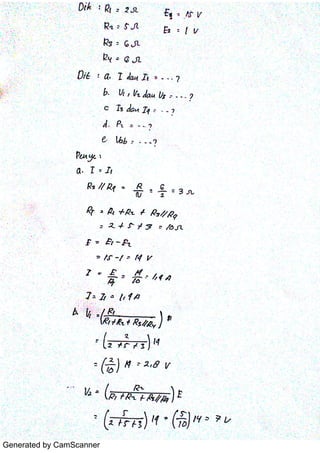 Dik : R1 = 2 Ω E1 = 15 V
R2 = 5 Ω E2 = 1 V
R3 = 6 Ω
R4 = 6 Ω
Dit : a. I dan I1 = ---?
b. V1, V2 dan V3 = ---?
c I3 dan I4 = --?
d. P2 = --?
e Vab = ---?
Penye :
a. I = I1
R3 // R4 = R/N = 6/2 = 3 Ω
Rt = R1 + R2 + R3//R4
= 2 + 5 + 3 = 10 Ω
E = E1 - E2
= 15 - 1 = 14 V
I = E/R = 14/10 = 1,4 A
I = I1 = 1,4 A
b V1 = (R1/R1+R2+R3//R4) E
= (2/2+5+3) 14
= (2/10) 14 = 2,8 V
V2 = (R2/R1+R2+R3//R4) E
= (5/2+5+3) 14 = (5/10) 14 = 7 V
Generated by CamScanner